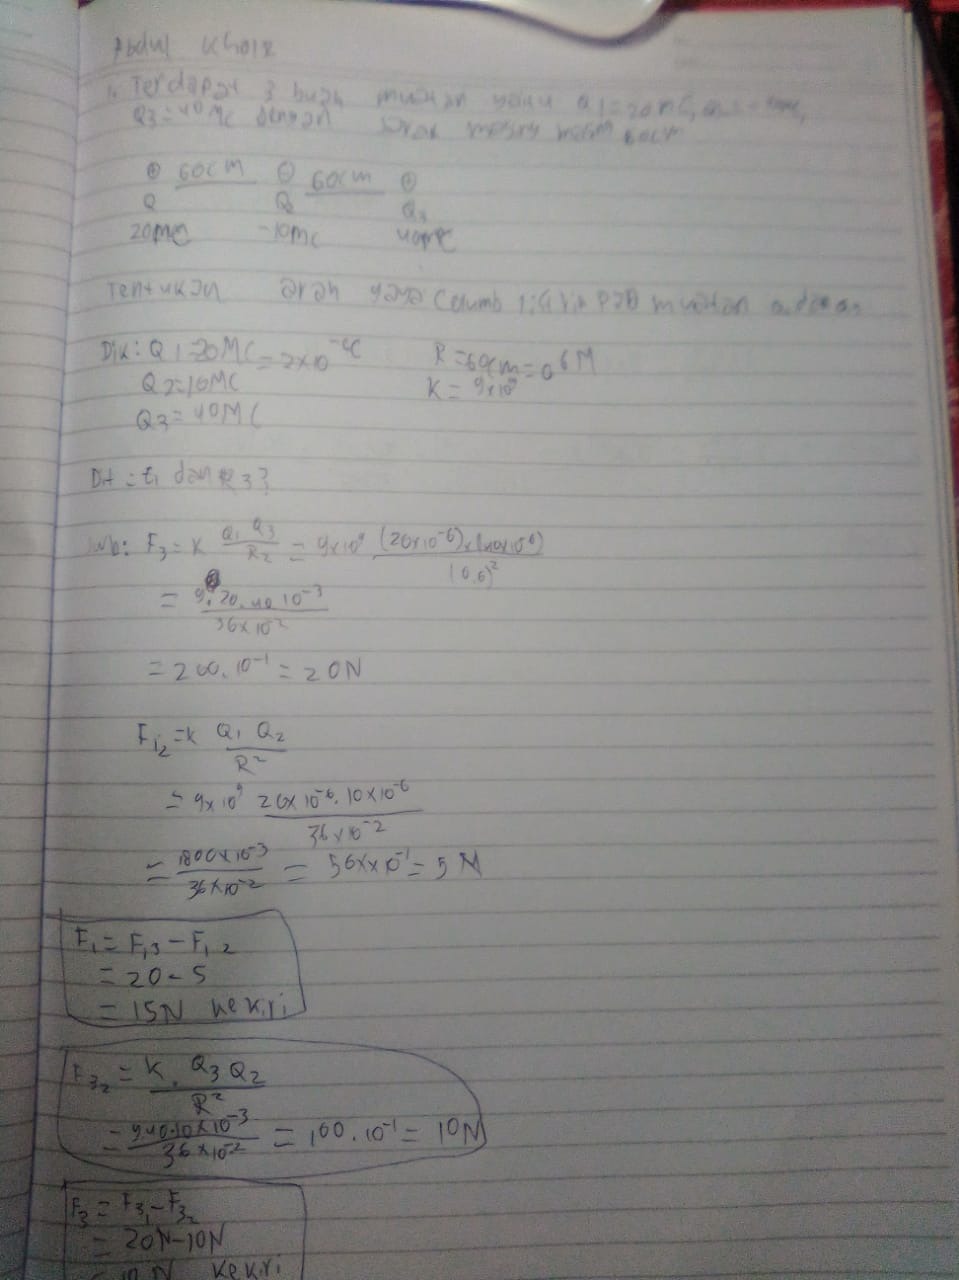 Abdul Khoir
1. Terdapat 3 buah muatan yaitu Q1=20MC, Q2=-10MC,
Q3=40MC dengan Jarak masing masing 60cm
⊕ 60cm ⊖ 60cm ⊕
Q Q2 Q3
20MC -10MC 40MC
Tentukan arah gaya Coumb pada muatan
Dik: Q1=20MC = 2x10 C R=60cm=06M
Q2=10MC K= 9x10⁹
Q3=40MC
Dit = dan 3?
Jwb: F3=K Q1 Q3 / R2 = 9x10⁹ (20x10-6)x(40x10⁶) / (0,6)²
= 9.20.40 10-3 / 36x10-2
= 200.10-1 = 20N
F12=K Q1 Q2 / R²
= 9x10⁹ 20x10-6.10x10-6 / 36x10-2
= 1800x10-3 / 36x10-2 = 50xx10-1= 5 N
F1= F13-F12
= 20-5
= 15N kekiri
F32= K. Q3 Q2 / R²
= 940.10x10-3 / 36x10-2 = 100.10-1= 10N
F3= F31-F32
= 20N-10N
= 10 N kekiri